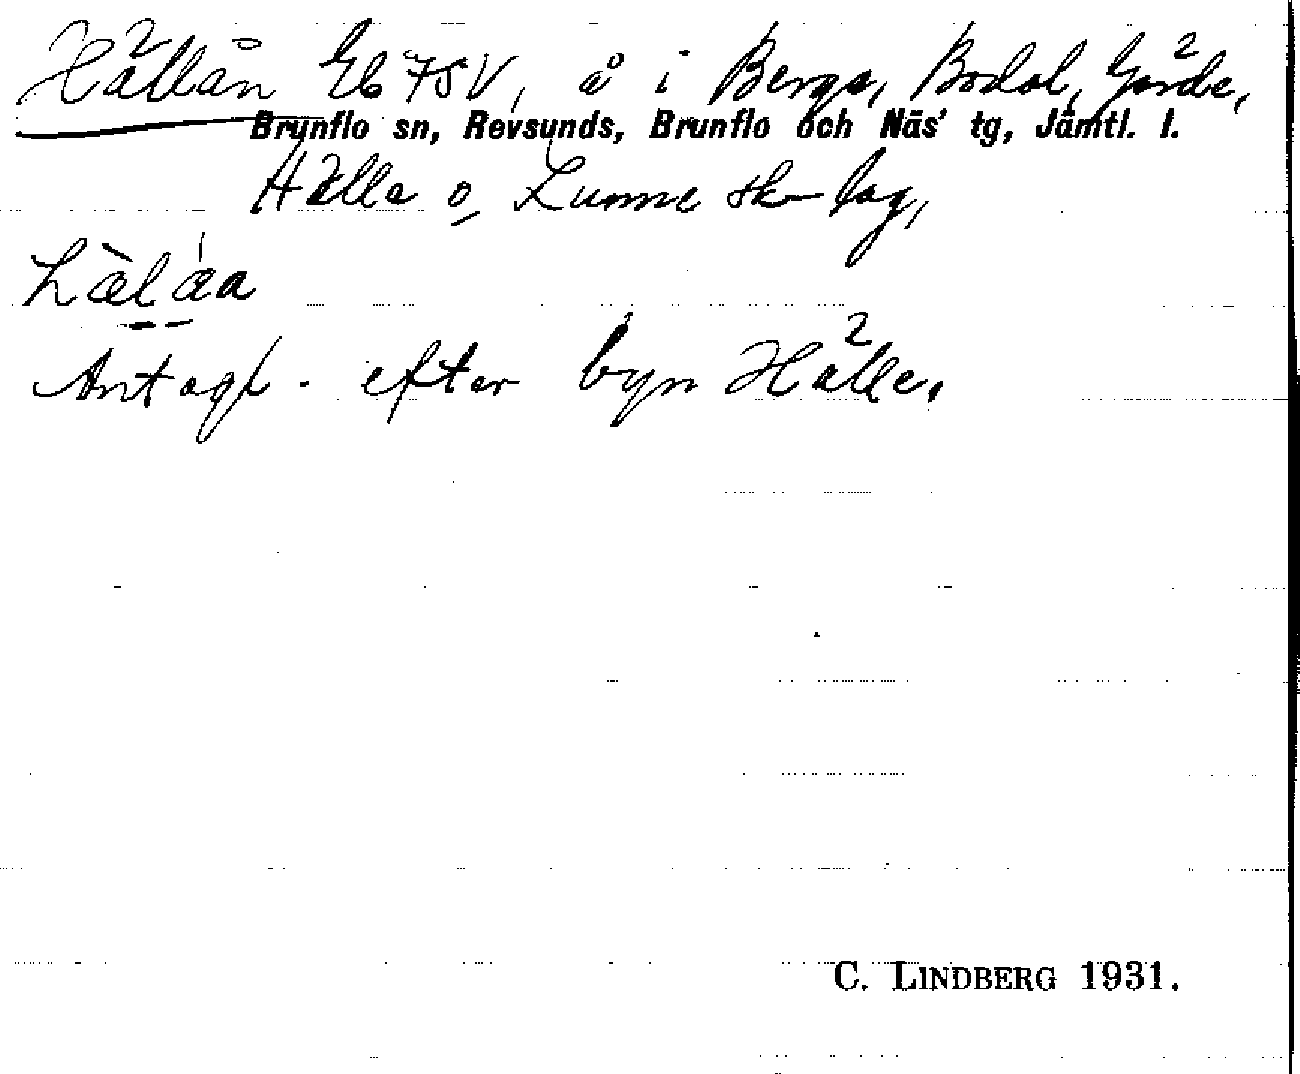 Hällån Eb 75V, å i Berga, Bodal, Gärde,
Brunflo sn, Revsunds, Brunflo och Näs' tg, Jämtl. l.
Hälle o, Lunne sk-lag,
Antagl. efter byn Hälle.
C. LINDBERG 1931.